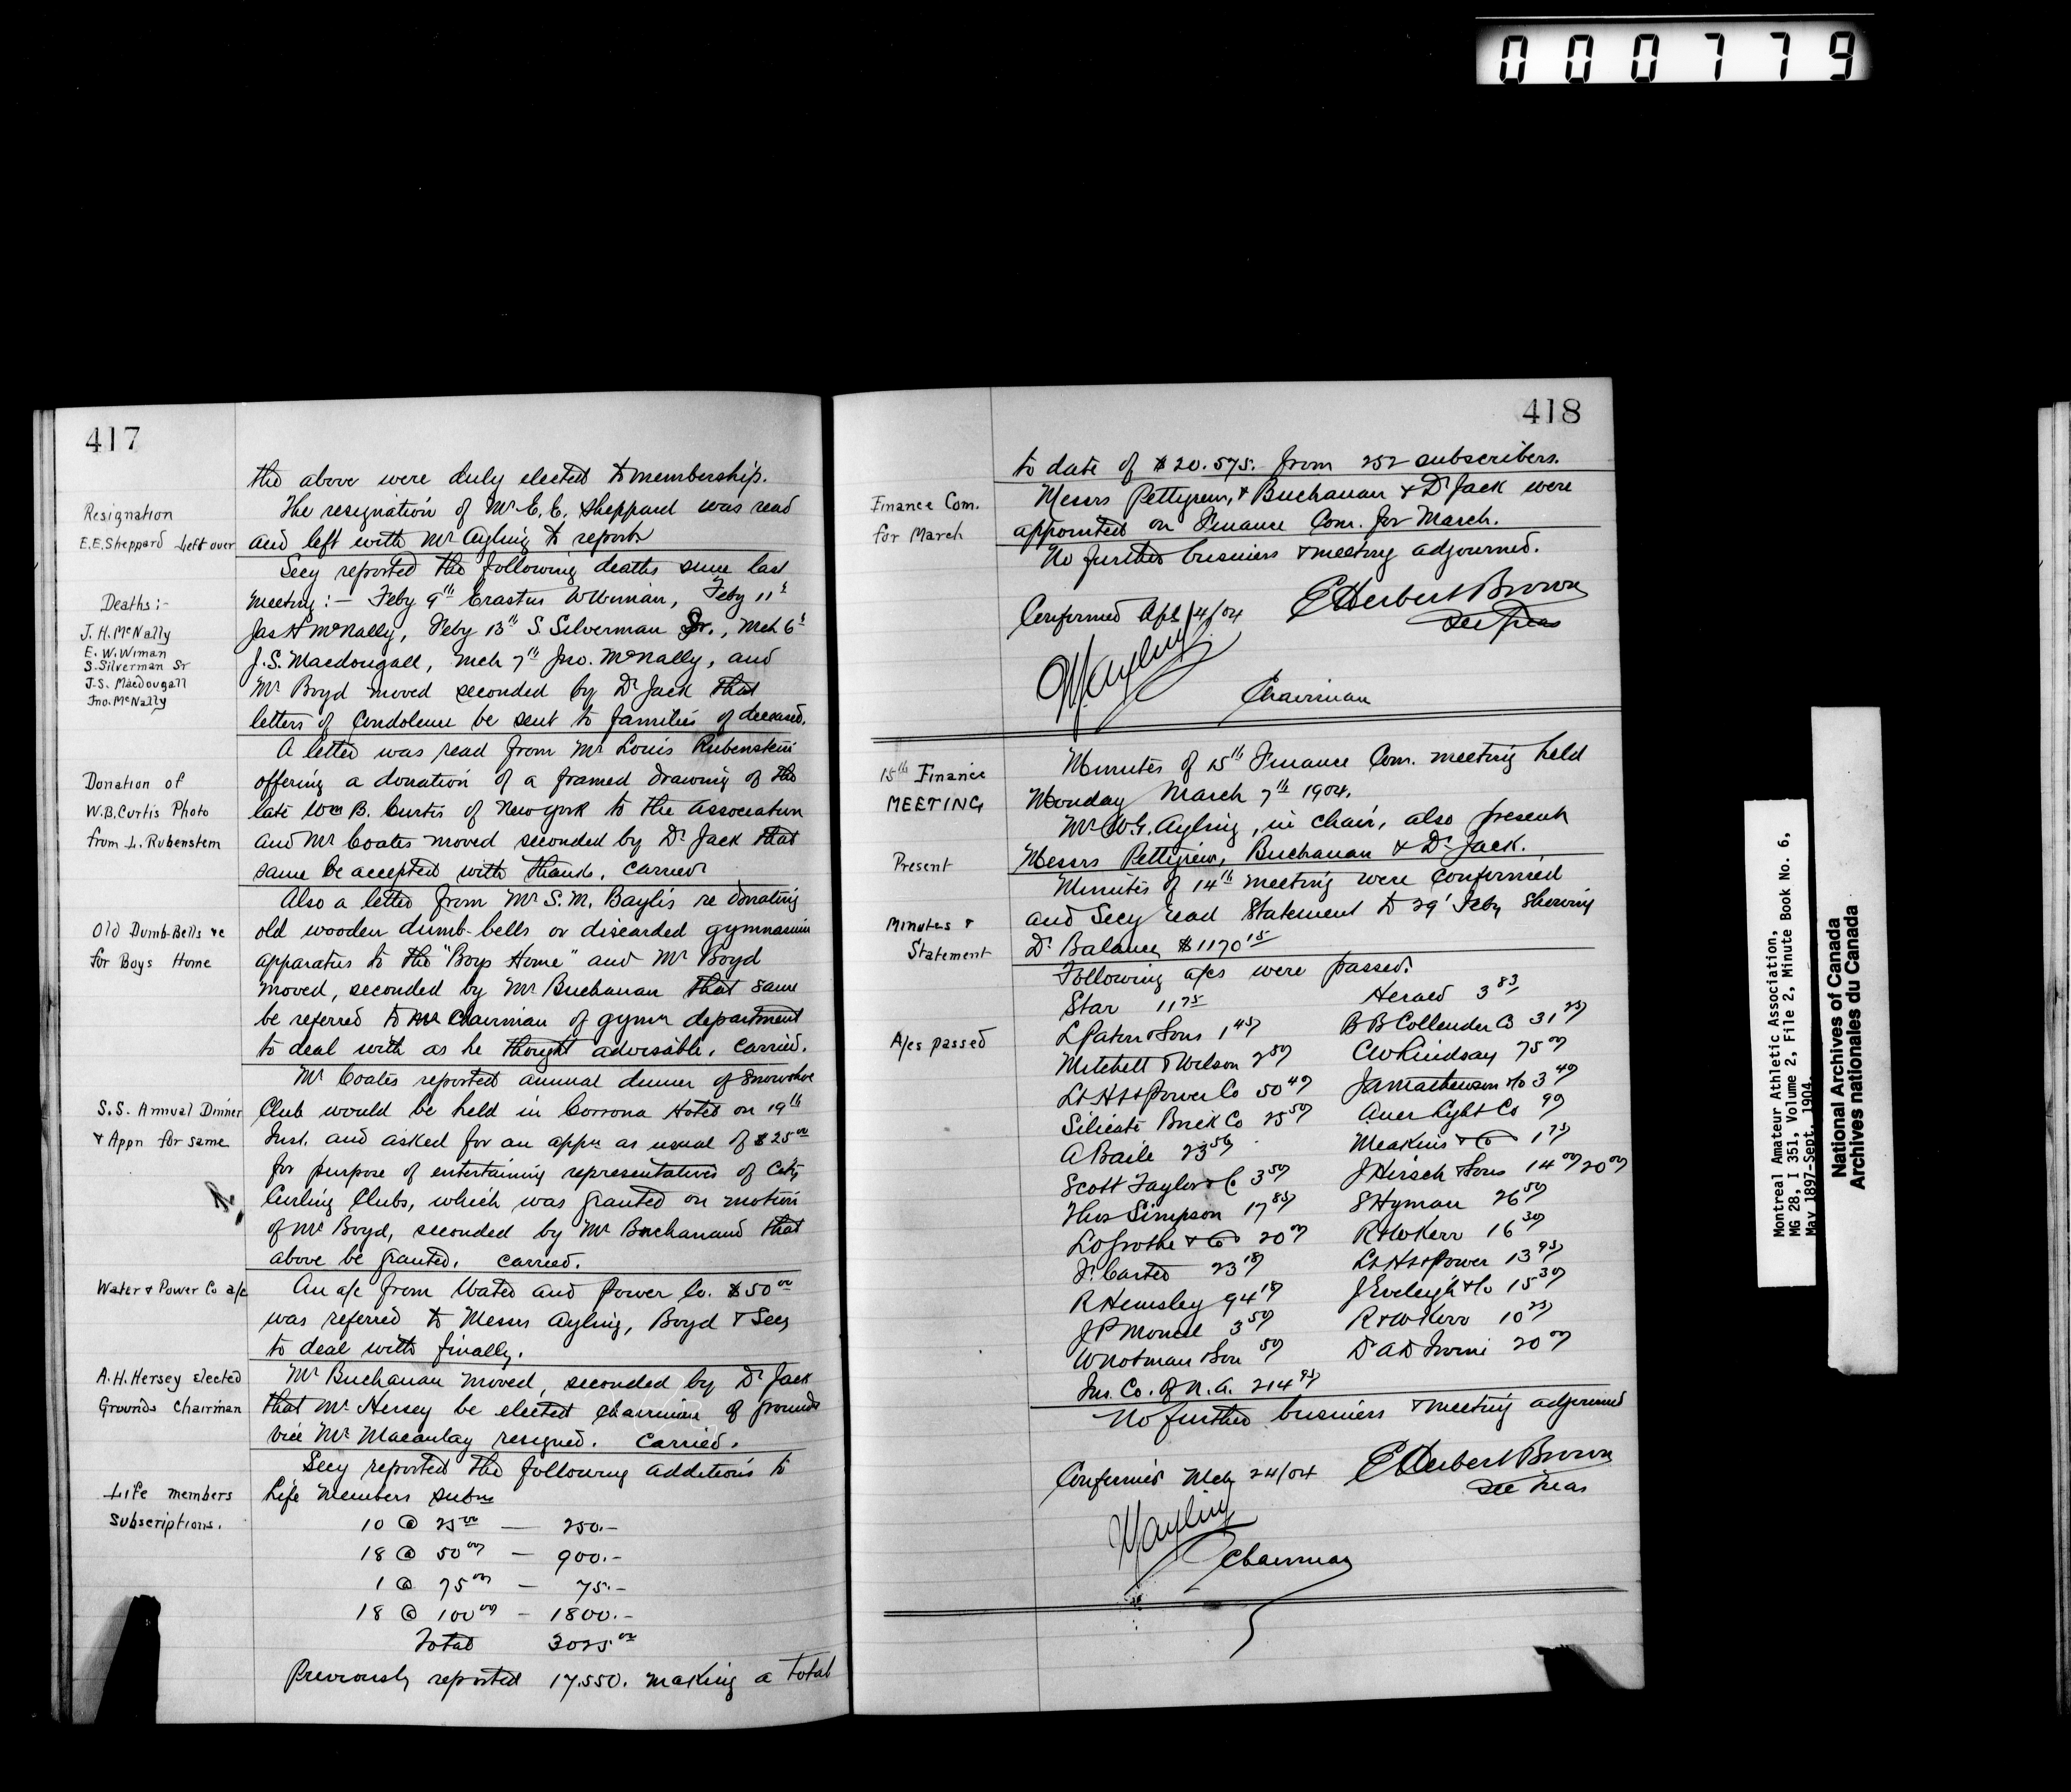 000779
417
the above were duly elected to membership.
Resignation
E.E. Sheppard Left over
The resignation of Mr E.E. Sheppard was read
and left with Mr Ayling to report
Secy reported the following deaths since last
Deaths:-
J. H. McNally
E. W. Wiman
S. Silverman Sr
J.S. Macdougall
Jno. McNally
meeting:- Feby 9th Erastus W Wiman, Feby 11th
Jas H McNally, Feby 13th S. Silverman Sr., Mch 6th
J.S. Macdougall, Mch 7th Jno. McNally, and
Mr Boyd moved seconded by Dr Jack that
letters of Condolence be sent to families of deceased.
A letter was read from Mr Louis Rubenstein
Donation of
W.B. Curtis Photo
from L. Rubenstein
offering a donation of a framed drawing of the
late Wm B. Curtis of New York to the Association
and Mr Coates moved seconded by Dr Jack that
same be accepted with thanks. Carried
Also a letter from Mr S.M. Baylis re donating
Old Dumb-Bells &c
for Boys Home
old wooden dumb-bells or discarded gymnasium
apparatus to the "Boys Home" and Mr Boyd
moved, seconded by Mr Buchanan that same
be referred to Chairman of gymn department
to deal with as he thought advisable. Carried.
Mr Coates reported annual dinner of Snowshoe
S.S. Annual Dinner
& Appn for same
Club would be held in Corona Hotel on 19th
Inst. and asked for an appn as usual of $25 00
for purpose of entertaining representatives of City
Curling Clubs, which was granted on motion
of Mr Boyd, seconded by Mr Buchanand that
above be granted. Carried.
Water & Power Co a/c
An a/c from Water and Power Co. $50 00
was referred to Messrs Ayling, Boyd & Secy
to deal with finally.
A.H. Hersey elected
Grounds Chairman
Mr Buchanan moved, seconded by Dr Jack
that Mr Hersey be elected chairman of grounds
vice Mr Macaulay resigned. Carried.
Secy reported the following additions to
Life members
Subscriptions.
Life Members subns
10 @ 25 00 — 250.-
18 @ 50 00 — 900.-
1 @ 75 00 — 75.-
18 @ 100 00 — 1800.-
Total 3025 00
Previously reported 17.550. making a total
418
to date of $20.575. from 252 subscribers.
Finance Com.
for March
Messrs Pettigrew, & Buchanan & Dr Jack were
appointed on Finance Com. for March.
No further business & meeting adjourned.
Confirmed Apl 14/04 E Herbert Brown
Sec Treas
W G Ayling
Chairman
15th Finance
MEETING
Minutes of 15th Finance Com. meeting held
Monday March 7th 1904.
Mr W.G. Ayling, in chair, also present
Present
Messrs Pettigrew, Buchanan & Dr Jack.
Minutes of 14th meeting were Confirmed
Minutes &
Statement
and Secy read Statement to 29' Feby showing
Dr Balance $1170 15
Following a/cs were passed.
A/cs passed
Star 11 75 Herald 3 83
L Paton & Sons 1 45 B B Collender Co 31 25
Mitchell & Wilson 2 50 C W Lindsay 75 00
Lt Ht & Power Co 50 40 J A Mathewson & Co 3 40
Silicate Brick Co 25 50 Auer Light Co 90
A Baile 23 56 Meakins & Co 1 75
Scott Taylor & C 3 50 J Hirsch & Sons 14 00 20 00
Thos Simpson 17 85 S Hyman 26 50
L O Grothe & Co 20 00 R & W Kerr 16 30
F. Carter 23 18 Lt Ht & Power 13 95
R Hemsley 94 18 J Eveleigh & Co 15 30
J P 3 50 R & W Kerr 10 25
W Notman & Son 50 Dr A D Irvine 20 00
Ins. Co. of N.A. 214 95
No further business & meeting adjourned
Confirmed Mch 24/04 E Herbert Brown
Sec Treas
W G Ayling
Chairman
Montreal Amateur Athletic Association,
MG 28, I 351, Volume 2, File 2, Minute Book No. 6,
May 1897-Sept. 1904.
National Archives of Canada
Archives nationales du Canada